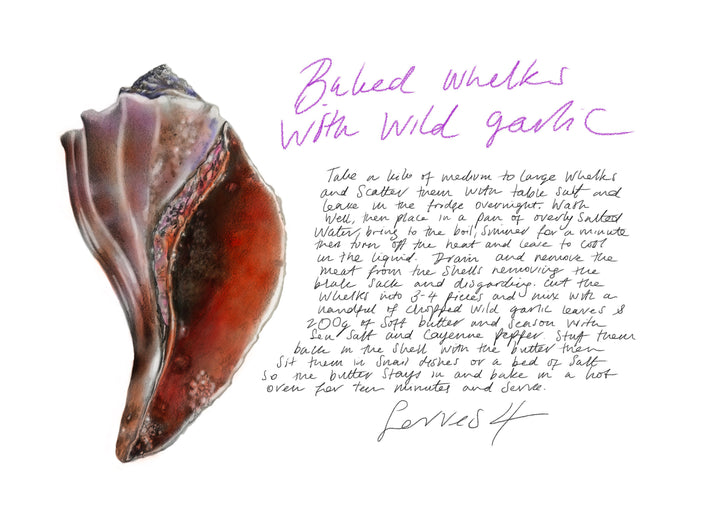 Baked whelks
with wild garlic
Take a kilo of medium to large whelks
and scatter them with table salt and
leave in the fridge overnight. Wash
well, then place in a pan of overly salted
water, bring to the boil, simmer for a minute
then turn off the heat and leave to cool
in the liquid. Drain and remove the
meat from the shells removing the
brake sack and disgarding. Cut the
whelks into 3-4 pieces and mix with a
handful of chopped wild garlic leaves &
200g of soft butter and season with
sea salt and cayenne pepper. Stuff them
back in the shell with the butter then
sit them in snail dishes or a bed of salt
so the butter stays in and bake in a hot
oven for ten minutes and serve.
Serves 4